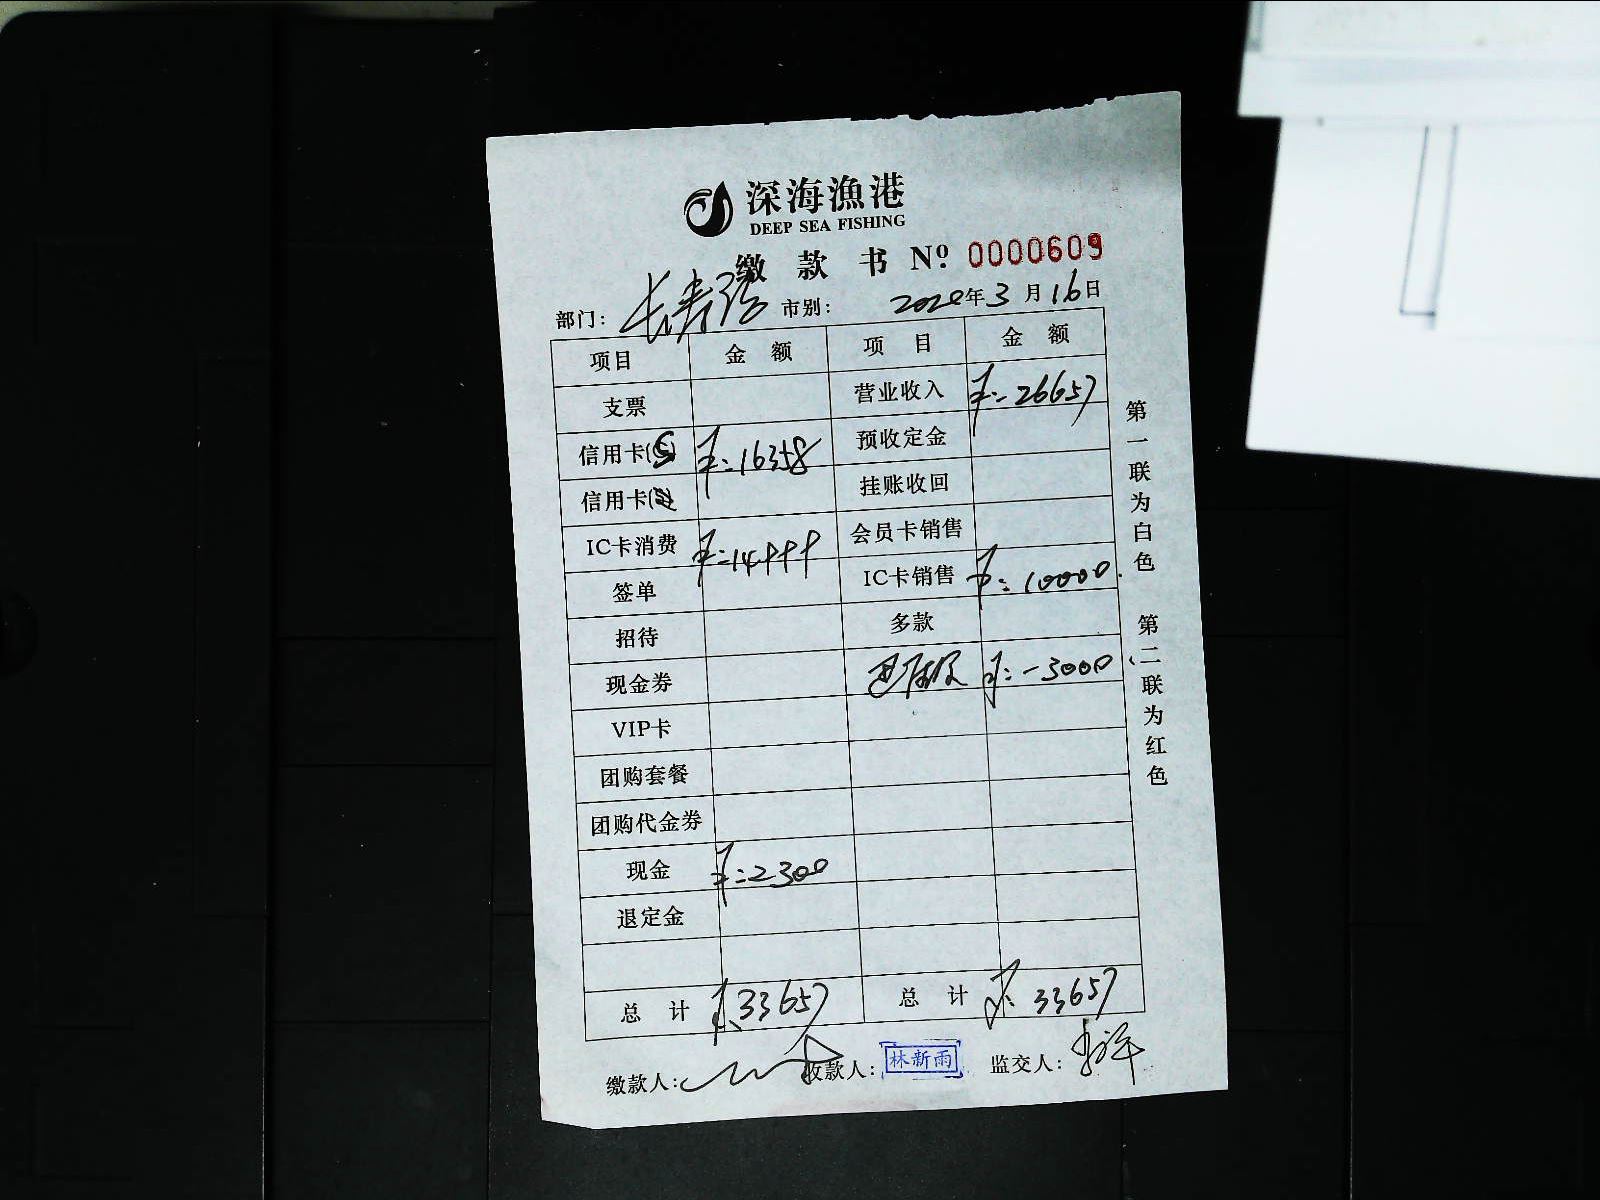 深海渔港
DEEP SEA FISHING
缴款书 Nº 0000609
部门: 长寿路 市别: 2020年3月16日
项目 金额 项目 金额
支票 营业收入 ¥:26657
信用卡(5) ¥:16358 预收定金
信用卡( 挂账收回
IC卡消费 ¥:14999 会员卡销售
签单 IC卡销售 ¥:10000.
招待 多款
现金券 ¥:-3000
VIP卡
团购套餐
团购代金券
现金 ¥:2300
退定金
总计 ¥:33657 总计 ¥:33657
缴款人: 收款人: 林新雨 监交人:
第一联为白色 第二联为红色